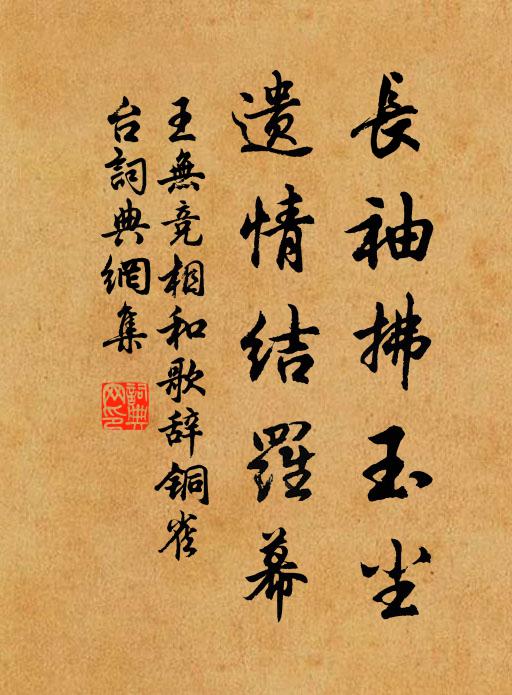 長袖拂玉尘
遗情结羅幕
王無竞相和歌辞铜雀
台詞典網集
詞典网印